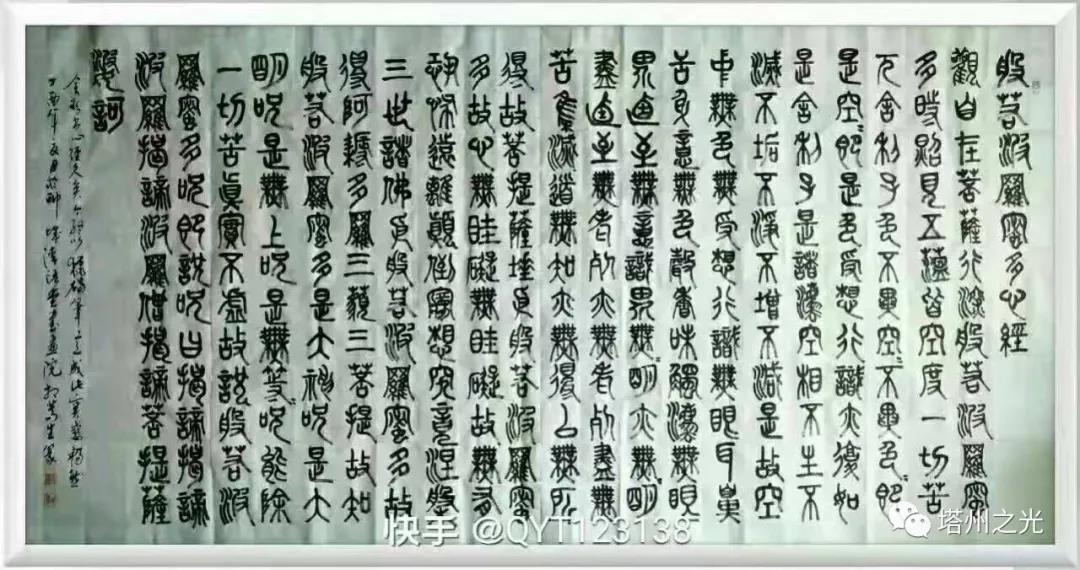 般若波羅蜜多心經
觀自在菩薩行深般若波羅蜜
多時照見五蘊皆空度一切苦
厄舍利子色不異空〻不異色〻即
是空〻即是色受想行識亦復如
是舍利子是諸灋空相不生不
滅不垢不淨不增不減是故空
中無色無受想行識無眼耳鼻
舌身意無色聲香味觸灋無眼
界乃至無意識界無〻明亦無〻明
盡乃至無老死亦無老死盡無
苦集滅道無知亦無得以無所
得故菩提薩埵依般若波羅蜜
多故心無罣礙無罣礙故無有
恐怖遠離顛倒夢想究竟涅槃
三世諸佛依般若波羅蜜多故
得阿耨多羅三藐三菩提故知
般若波羅蜜多是大神咒是大
明咒是無上咒是無等〻咒能除
一切苦真實不虛故說般若波
羅蜜多咒即說咒曰揭諦揭諦
波羅揭諦波羅僧揭諦菩提薩
婆訶
丁酉年
快手 @QYT123138
塔州之光